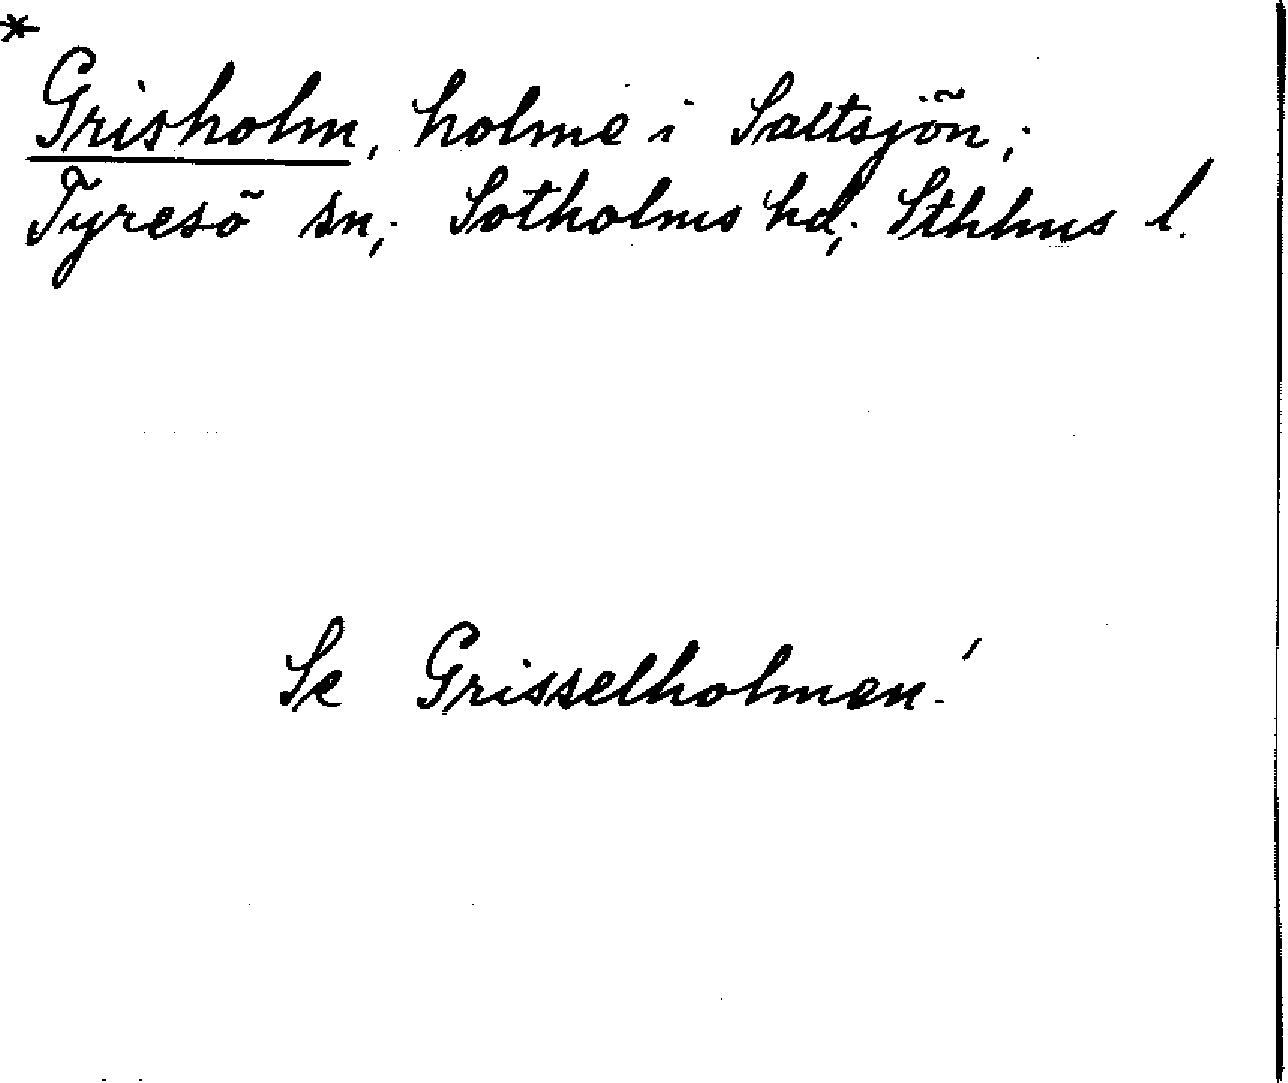 *
Grisholm, holme i Saltsjön;
Tyresö sn; Sotholms hd; Sthlms l.
Se Grisselholmen!